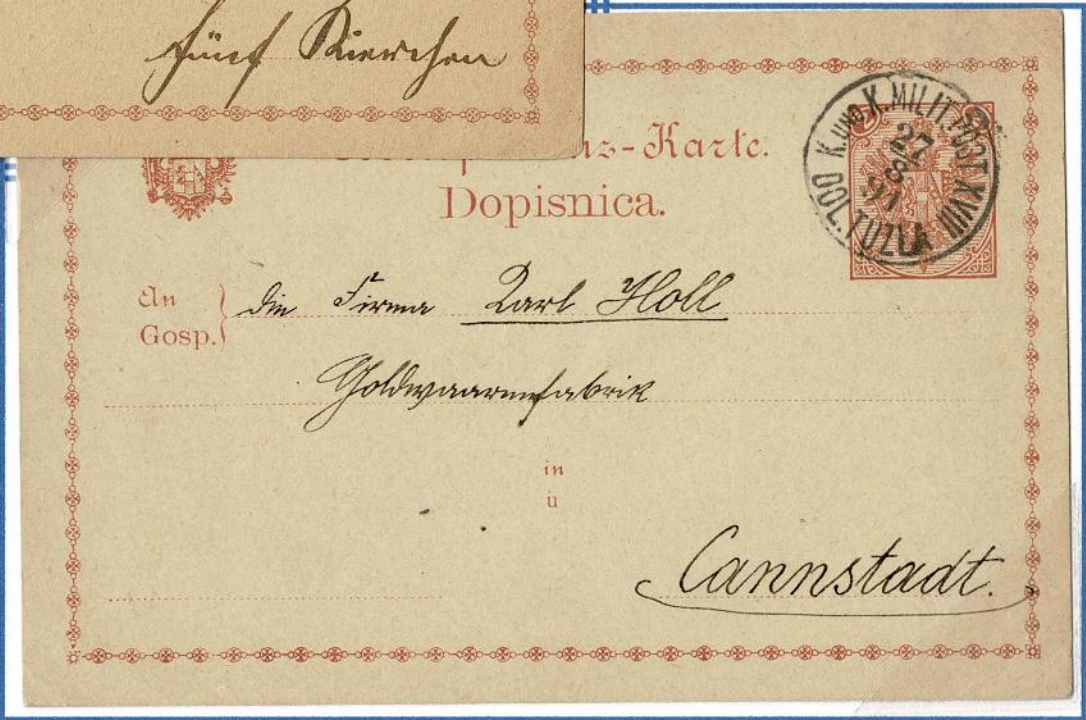 Fünf
uz-Karte.
Dopisnica.
K. UND K. MILIT. POST XVIII
27
8
91
DOL. TUZLA
An
Gosp.
die Firma Karl Holl
Goldwaarenfabrik
in
u
Cannstadt.